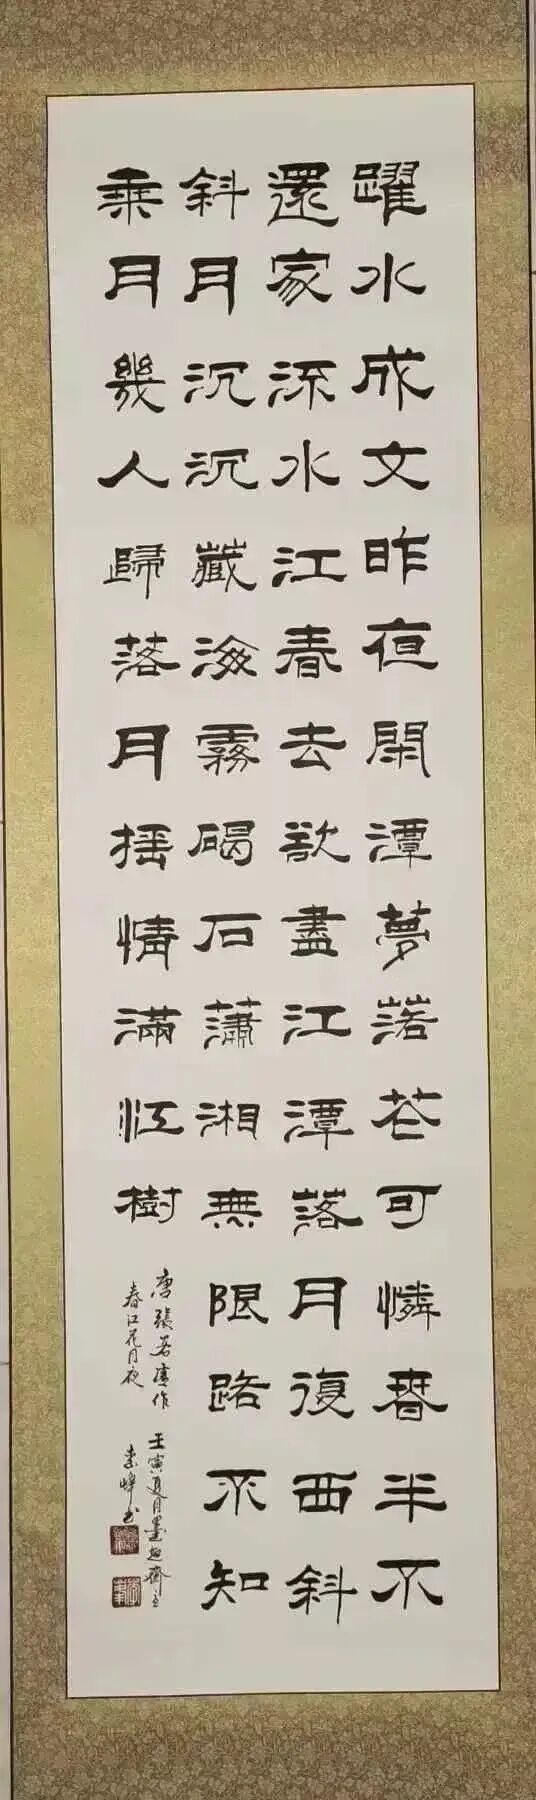 躍水成文昨夜閑潭夢落花可憐春半不
還家流水江春去欲盡江潭落月復西斜
斜月沉沉藏海霧碣石瀟湘無限路不知
乘月幾人歸落月搖情滿江樹
唐張若虛作
春江花月夜
壬寅夏月墨齋主
峰书